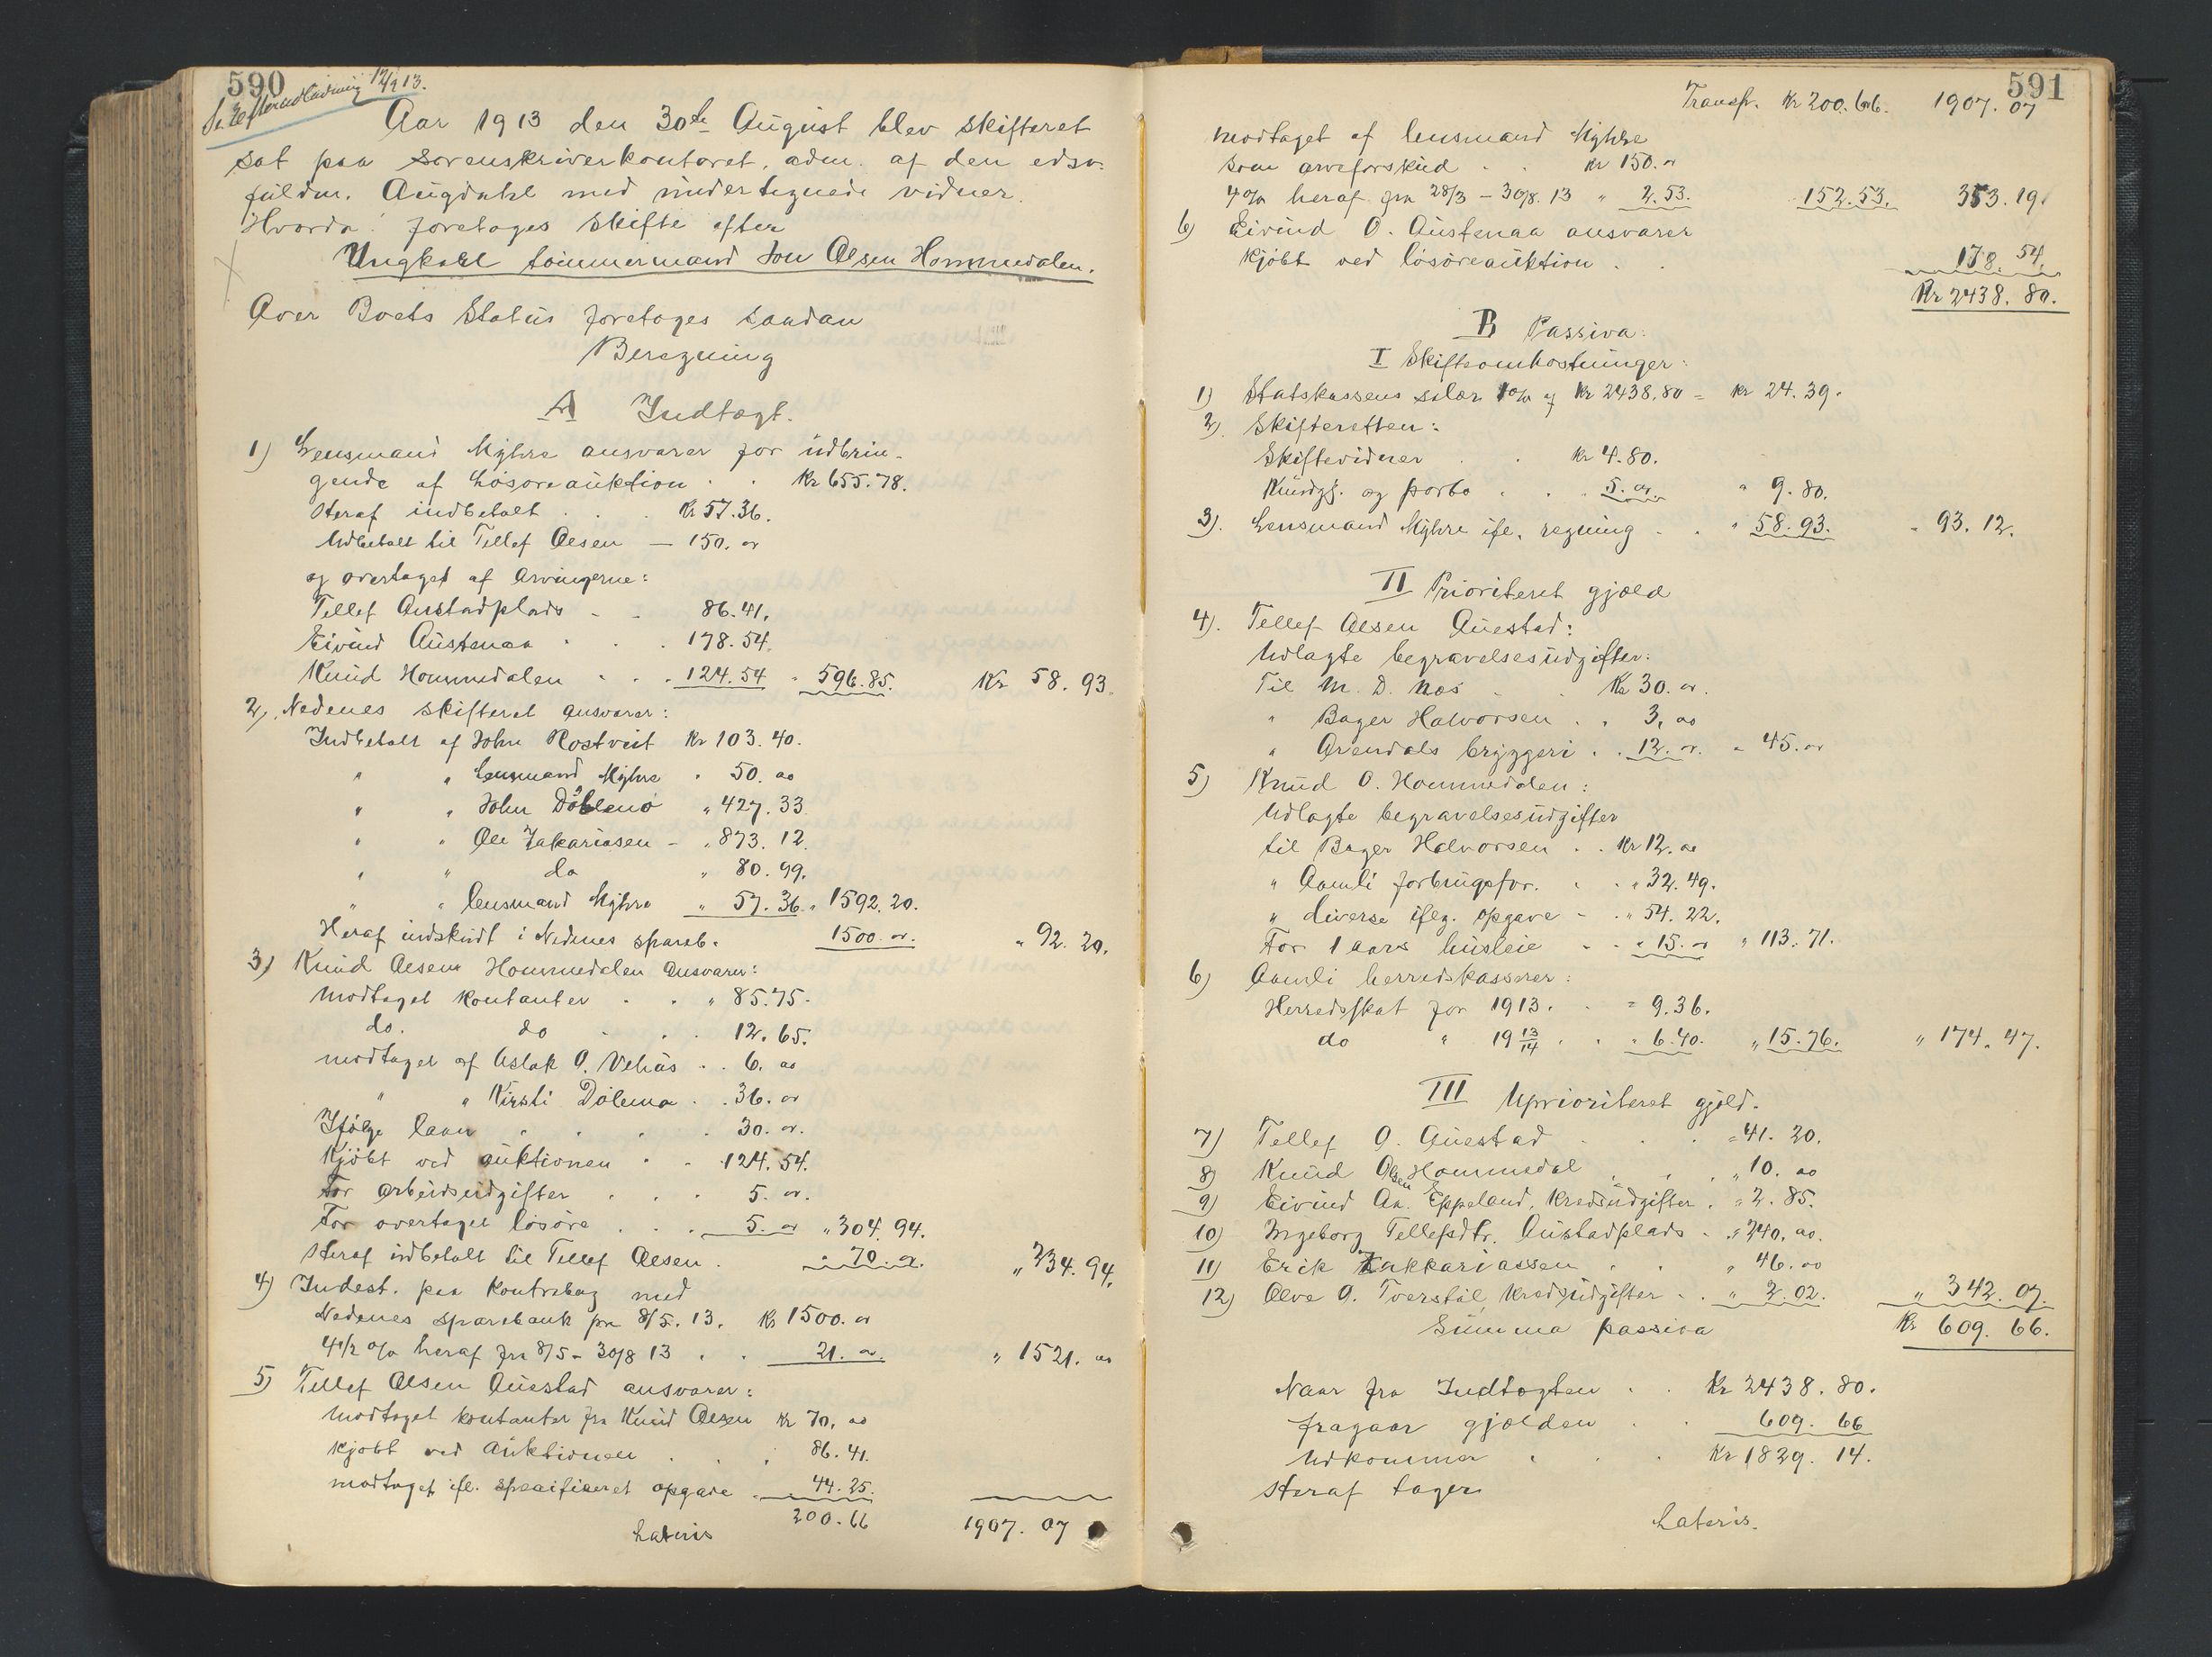 590
Se Efterudlodning 12/9 13.
Aar 1913 den 30te August blev skifteret
sat paa Sorenskriverkontoret, adm. af den edsv.
fuldm. Augdahl med undertegnede vidner.
Hvorda! foretoges skifte efter
Ungkarl tømmermand Jon Olsen Hommedalen.
Over Boets Status foretoges saadan
Beregning
A Indtægt.
1) Lensmand Myhre ansvarer for udbrin-
gende af Løsøreauktion . . Kr 655.78.
Heraf indbetalt . . . Kr 57.36.
Udbetalt til Tellef Olsen — 150. oo
og overtaget af Arvingerne:
Tellef Austadplads - - 86.41.
Eivind Austenaa . . . 178.54.
Knud Hommedalen . . . 124.54 " 596.85. Kr 58.93.
2) Nedenes skifteret ansvarer:
Indbetalt af John Rostveit Kr 103.40.
" " Lensmand Myhre " 50. oo
" " John Dølemo " 427.33
" " Ole Zakariasen - " 873.12.
" " do " 80.99.
" " Lensmand Myhre " 57.36 " 1592.20.
Heraf indskudt i Nedenes spareb. 1500. oo. " 92.20.
3) Knud Olsen Hommedalen ansvarer:
Modtaget kontanter . . " 85.75.
do. do . . . 12.65.
modtaget af Aslak O. Vehus . . 6. oo
" " Kirsti Dølemo . . 36. oo
Ifølge laan . . . . 30. oo.
Kjøbt ved auktionen . . . 124.54.
For arbeidsudgifter . . . 5. oo.
For overtaget løsøre . . . 5. oo " 304.94.
Heraf indbetalt til Tellef Olsen . " 70. oo. " 234.94.
4) Indest. paa Kontrabog med
Nedenes sparebank pr 8/5. 13. Kr 1500. oo
4 1/2 o/o heraf fra 8/5 - 30/8 13 . . 21. oo. " 1521. oo
5) Tellef Olsen Auestad ansvarer:
Modtaget kontanter fra Knud Olsen Kr 70. oo
Kjøbt ved Auktionen . . . 86.41.
modtaget ifl. specificeret opgave . 44.25.
Lateris 200.66 1907.07
591
Transp. Kr 200.66. 1907.07
modtaget af lensmand Myhre
som arveforskud . . Kr 150. oo
4 o/o heraf fra 28/3 - 30/8. 13 " 2.53. 152.53. 353.19.
6) Eivind O. Austenaa ansvarer
Kjøbt ved løsøreauktion . . 178.54.
Kr 2438.80.
B Passiva:
I Skifteomkostninger:
1) Statskassens salær 1 o/o af Kr 2438,80 = Kr 24.39.
2) Skifteretten:
Skiftevidner . . Kr 4.80.
Kundgj. og porto . . . 5. oo. " 9.80.
3). Lensmand Myhre ifl. regning . . " 58.93. " 93.12.
II Prioriteret gjæld
4). Tellef Olsen Auestad:
Udlagte begravelsesudgifter:
Til M. D. Næs . . Kr 30. oo.
" Bager Halvorsen . . 3. oo
" Arendals bryggeri . . 12. oo. " 45. oo
5) Knud O. Hommedalen:
Udlagte begravelsesudgifter
til Bager Halvorsen . . Kr 12. oo
" Aamli forbrugsfor. . . " 32.49.
" diverse iflg. opgave - . " 54.22.
For 1 aars husleie . . " 15. oo " 113.71.
6) Aamli herredskasserer:
Herredsskat for 1913. . " 9.36.
do " 19 13/14 . . " 6.40. " 15.76. " 174.47.
III Uprioriteret gjæld.
7) Tellef O. Auestad . . . " 41.20.
8) Knud Olsen Hommedal . . . " 10. oo
9) Eivind An. Eppeland, Kredsudgifter . " 2.85.
10) Ingeborg Tellefsdtr. Austadplads . " 240. oo.
11) Erik Zakkariassen . . " 46. oo
12) Olve O. Tveretøl, Kredsudgifter . . " 2.02. " 342.07.
Summa passiva Kr 609.66.
Naar fra Indtægten . . Kr 2438.80.
fragaar gjælden . . 609.66
Udkommer . . . Kr 1829.14.
Heraf tager
Lateris.